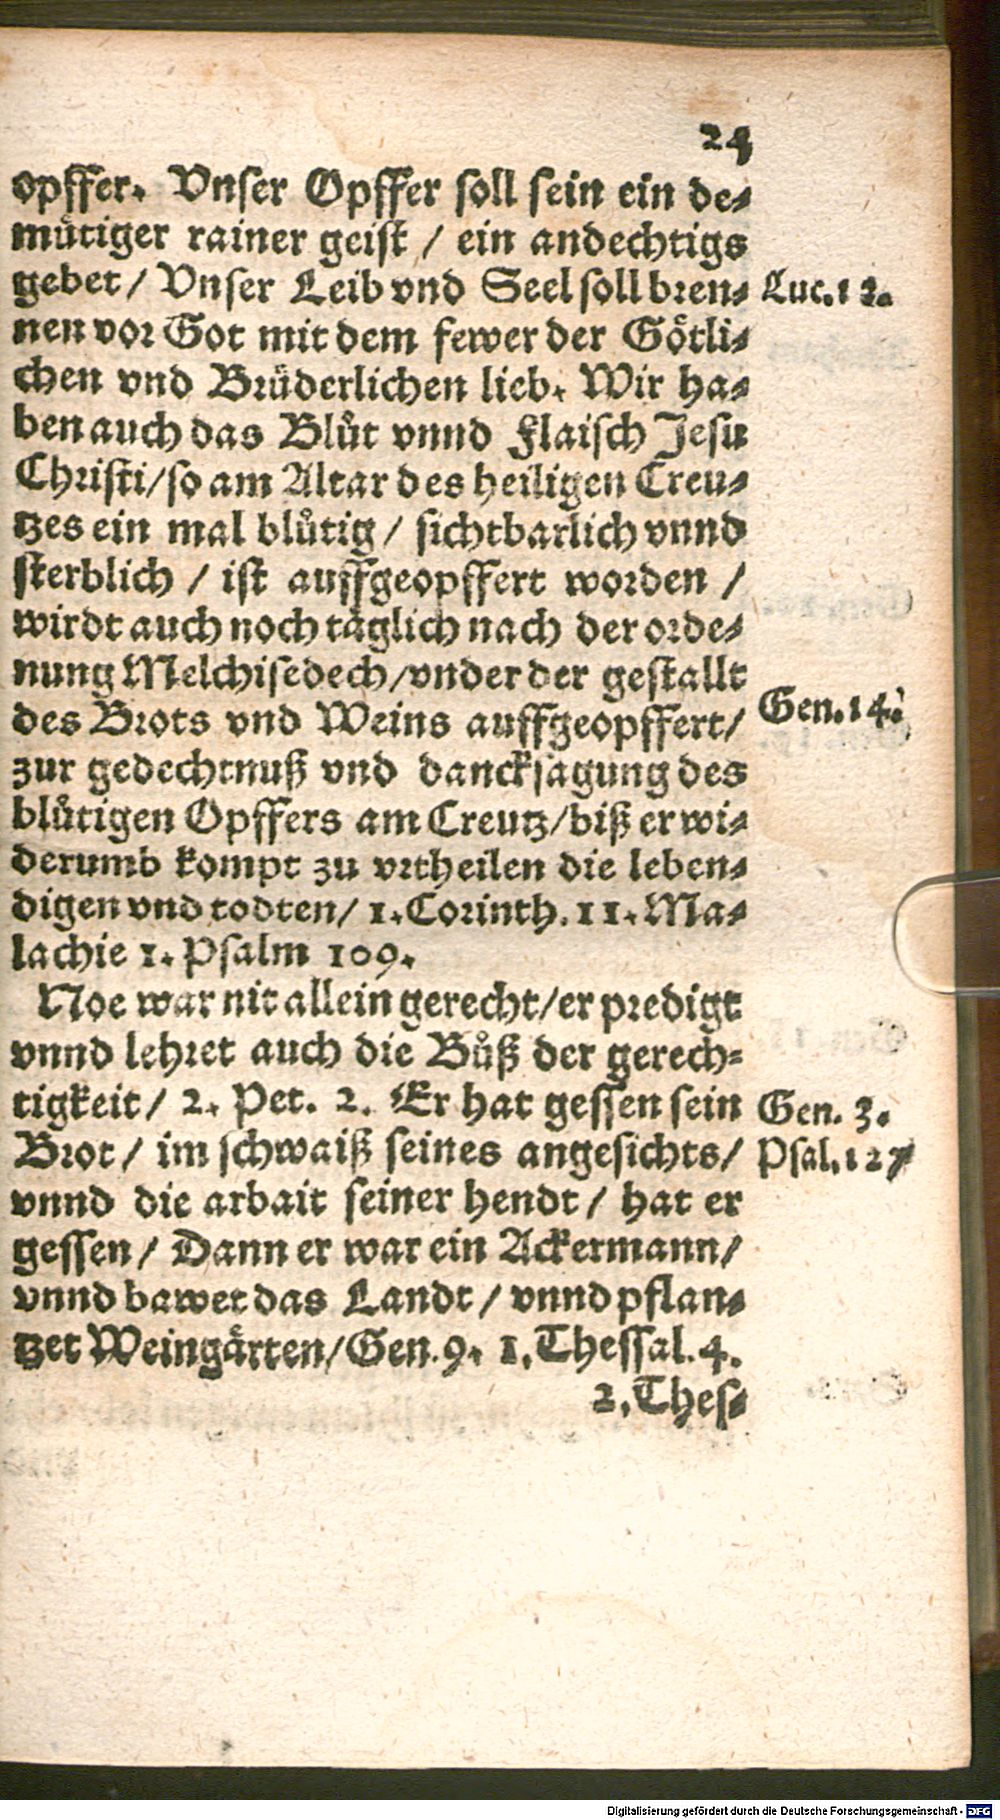 24
opffer. Vnser Opffer soll sein ein de⸗
mütiger rainer geist / ein andechtigs
gebet / Vnser Leib vnd Seel soll bren⸗
Luc. 12.
nen vor Got mit dem fewer der Götli⸗
chen vnd Brüderlichen lieb. Wir ha⸗
ben auch das Blůt vnnd Flaisch Jesu
Christi / so am Altar des heiligen Creu⸗
tzes ein mal blůtig / sichtbarlich vnnd
sterblich / ist auffgeopffert worden /
wirdt auch noch täglich nach der orde⸗
nung Melchisedech / vnder der gestallt
des Brots vnd Weins auffgeopffert /
Gen. 14.
zur gedechtnuß vnd dancksagung des
blůtigen Opffers am Creutz / biß er wi⸗
derumb kompt zu vrtheilen die leben⸗
digen vnd todten / 1. Corinth. 11. Ma⸗
lachie 1. Psalm 109.
Noe war nit allein gerecht / er predigt
vnnd lehret auch die Bůß der gerech⸗
tigkeit / 2. Pet. 2. Er hat gessen sein
Gen. 3.
Brot / im schwaiß seines angesichts /
Psal. 127
vnnd die arbait seiner hendt / hat er
gessen / Dann er war ein Ackermann /
vnnd bawet das Landt / vnnd pflan⸗
tzet Weingärten / Gen. 9. 1. Thessal. 4.
2. Thes⸗
Digitalisierung gefördert durch die Deutsche Forschungsgemeinschaft - DFG